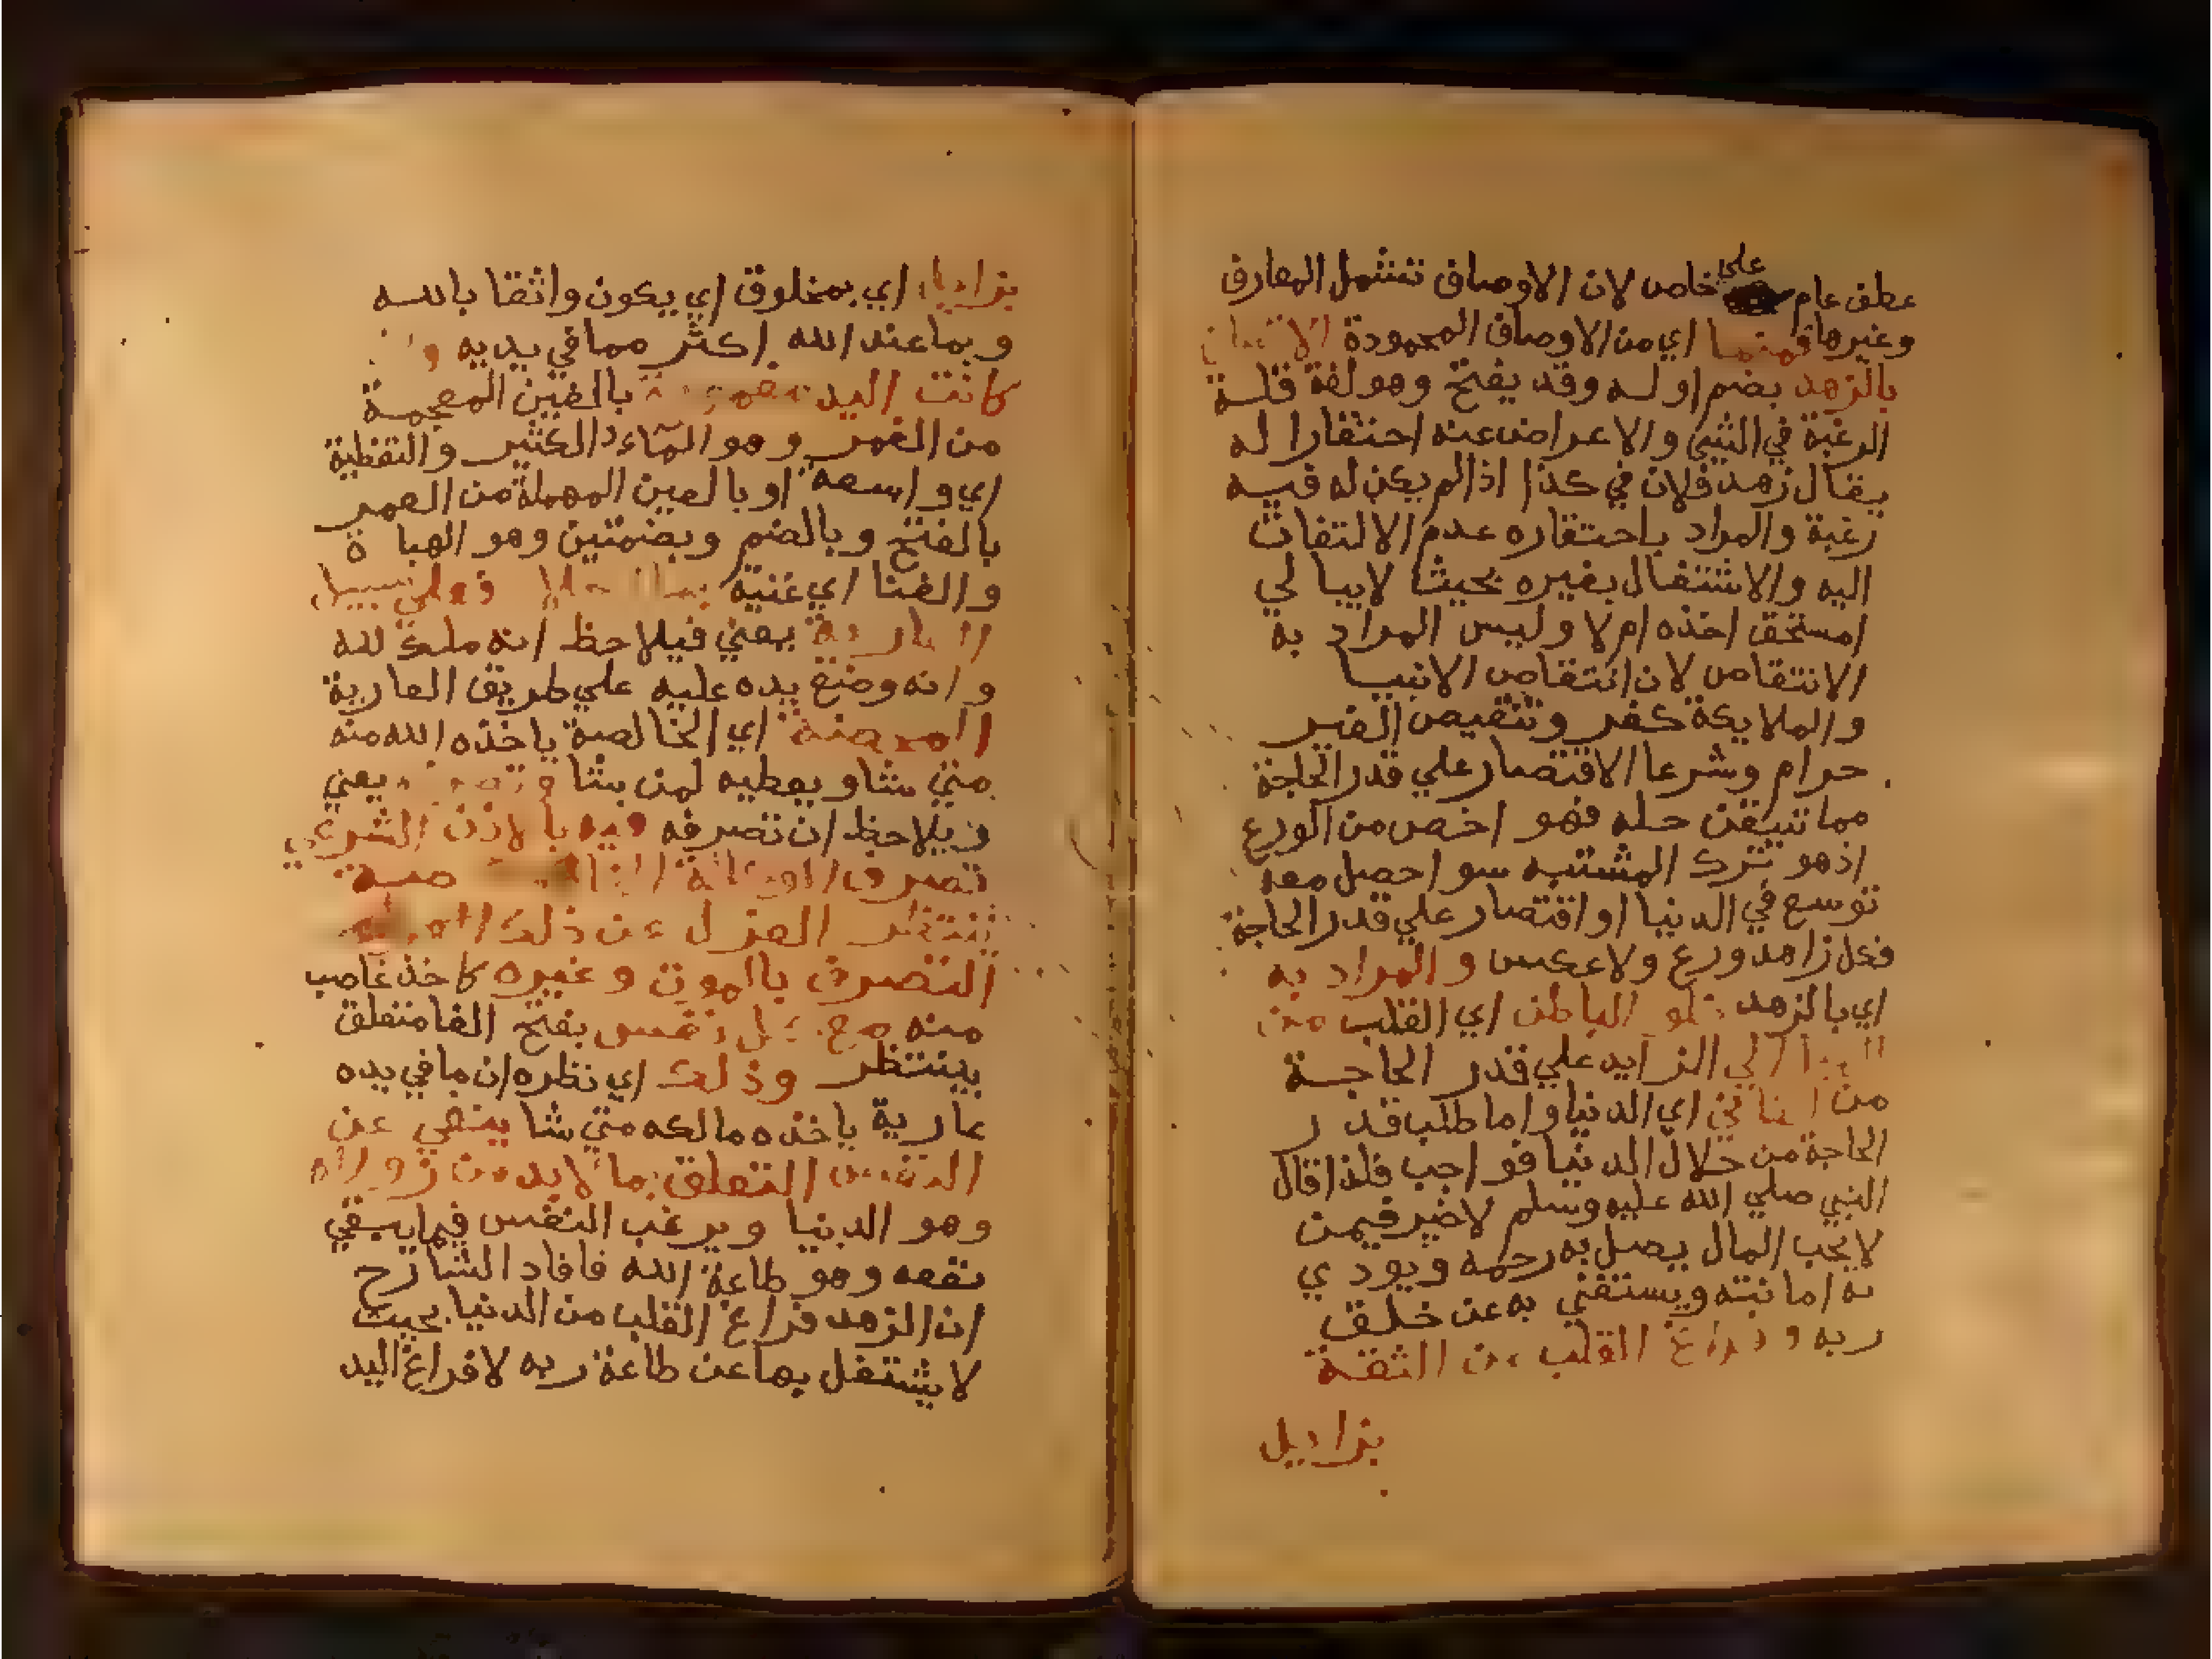 عطف عام علي خاص لان الاوصاف تشمل المعارف
وغيرها فمنها اي من الاوصاف المحمودة
بالزهد بضم اوله وقد يفتح وهو لغة قلة
الرغبة في الشي والاعراض عنه احتقارا له
يقال زهد فلان في كذا اذا لم يكن له فيه
رغبة والمراد باحتقاره عدم الالتفات
اليه والاشتغال بغيره بحيث لا يبالي
امستحق اخذه ام لا وليس المراد به
الانتقاص لان انتقاص الانبيا
والملايكة كفر وتنقيص الغير
حرام وشرعا الاقتصار علي قدر الحاجة
مما تتيقن حله فهو اخص من الورع
اذ هو ترك المشتبه سوا حصل معه
توسع في الدنيا او اقتصار علي قدر الحاجة
فكل زاهد ورع ولا عكس والمراد به
اي بالزهد خلو الباطن اي القلب من
الزايد علي قدر الحاجة
من اي الدنيا واما طلب قدر
الحاجة من حلال الدنيا فواجب فلذا قال
النبي صلي الله عليه وسلم لا خير فيمن
لا يحب المال يصل به رحمه ويودي
به امانته ويستغني به عن خلق
ربه وفراغ القلب من الثقة
بزايل
بزايل اي بمخلوق اي يكون واثقا بالله
وبما عند الله اكثر مما في يديه
كانت اليد بالغين المعجمة
من الغمر وهو الماء الكثير والتغطية
اي واسعة او بالعين المهملة من العمر
بالفتح وبالضم وبضمتين وهو
والغنا اي غنية فعلي سبيل
العارية يعني فيلاحظ انه ملك لله
وانه وضع يده عليه علي طريق العارية
المحضة اي الخالصة ياخذه الله منه
متي شا ويعطيه لمن يشا يعني
ويلاحظ ان تصرفه فيه بالاذن الشرعي
تصرف الوكالة
ننتظر العزل عن ذلك
التصرف بالموت وغيره كاخذ غاصب
منه مع كل نفس بفتح الفا متعلق
بينتظر وذلك اي نظره ان ما في يده
عارية ياخذه مالكه متي شا ينفي عن
النفس التعلق بما لا بد من زواله
وهو الدنيا ويرغب النفس فيما يبقي
نفعه وهو طاعة الله فافاد الشارح
ان الزهد فراغ القلب من الدنيا بحيث
لا يشتغل بها عن طاعة ربه لا فراغ اليد